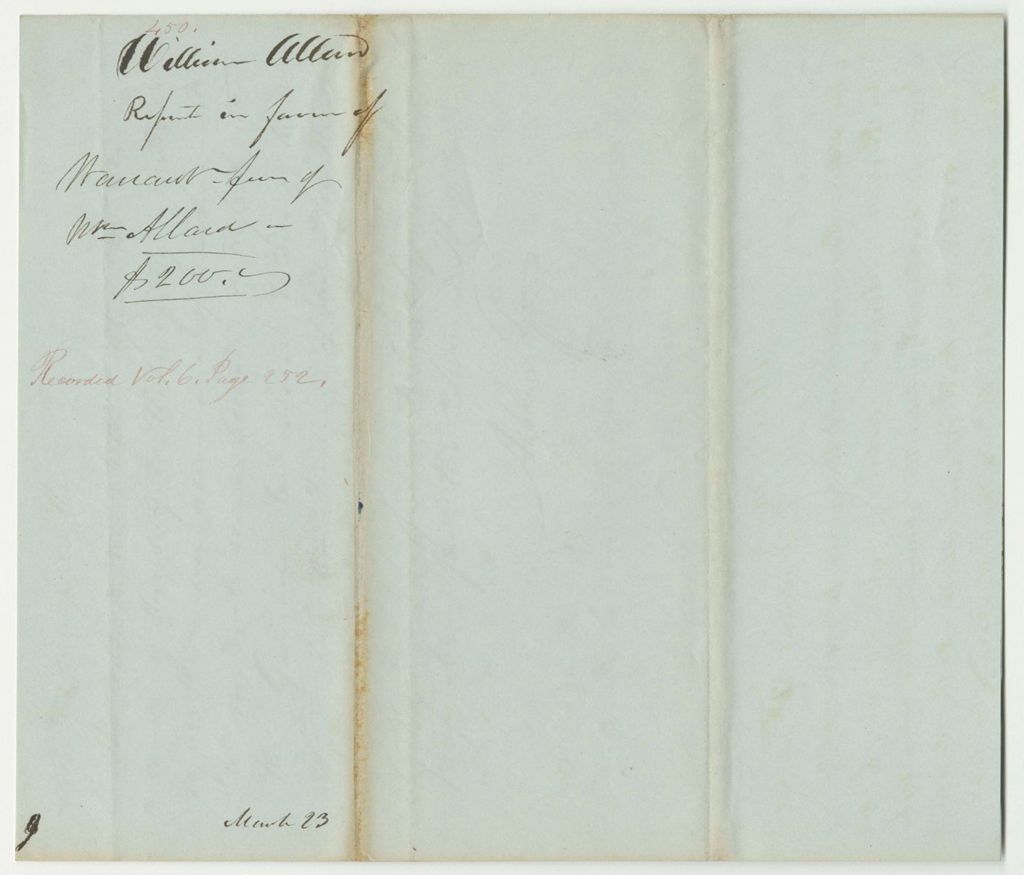 450.
William Allard
Report in favor of
Warrant favr of
Wm Allard
$200.
Recorded Vol. 6. Page 252.
March 23